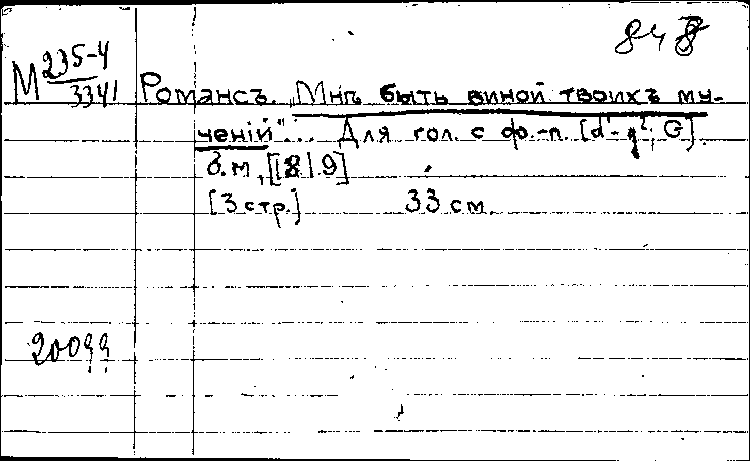 848
М 235-4
3341
Романсъ. „Мнѣ быть виной твоихъ му-
ченій"... Для гол. с ф.-п. [d¹-g²; G].
б.м, [18|9]
[3 стр.] 33 см.